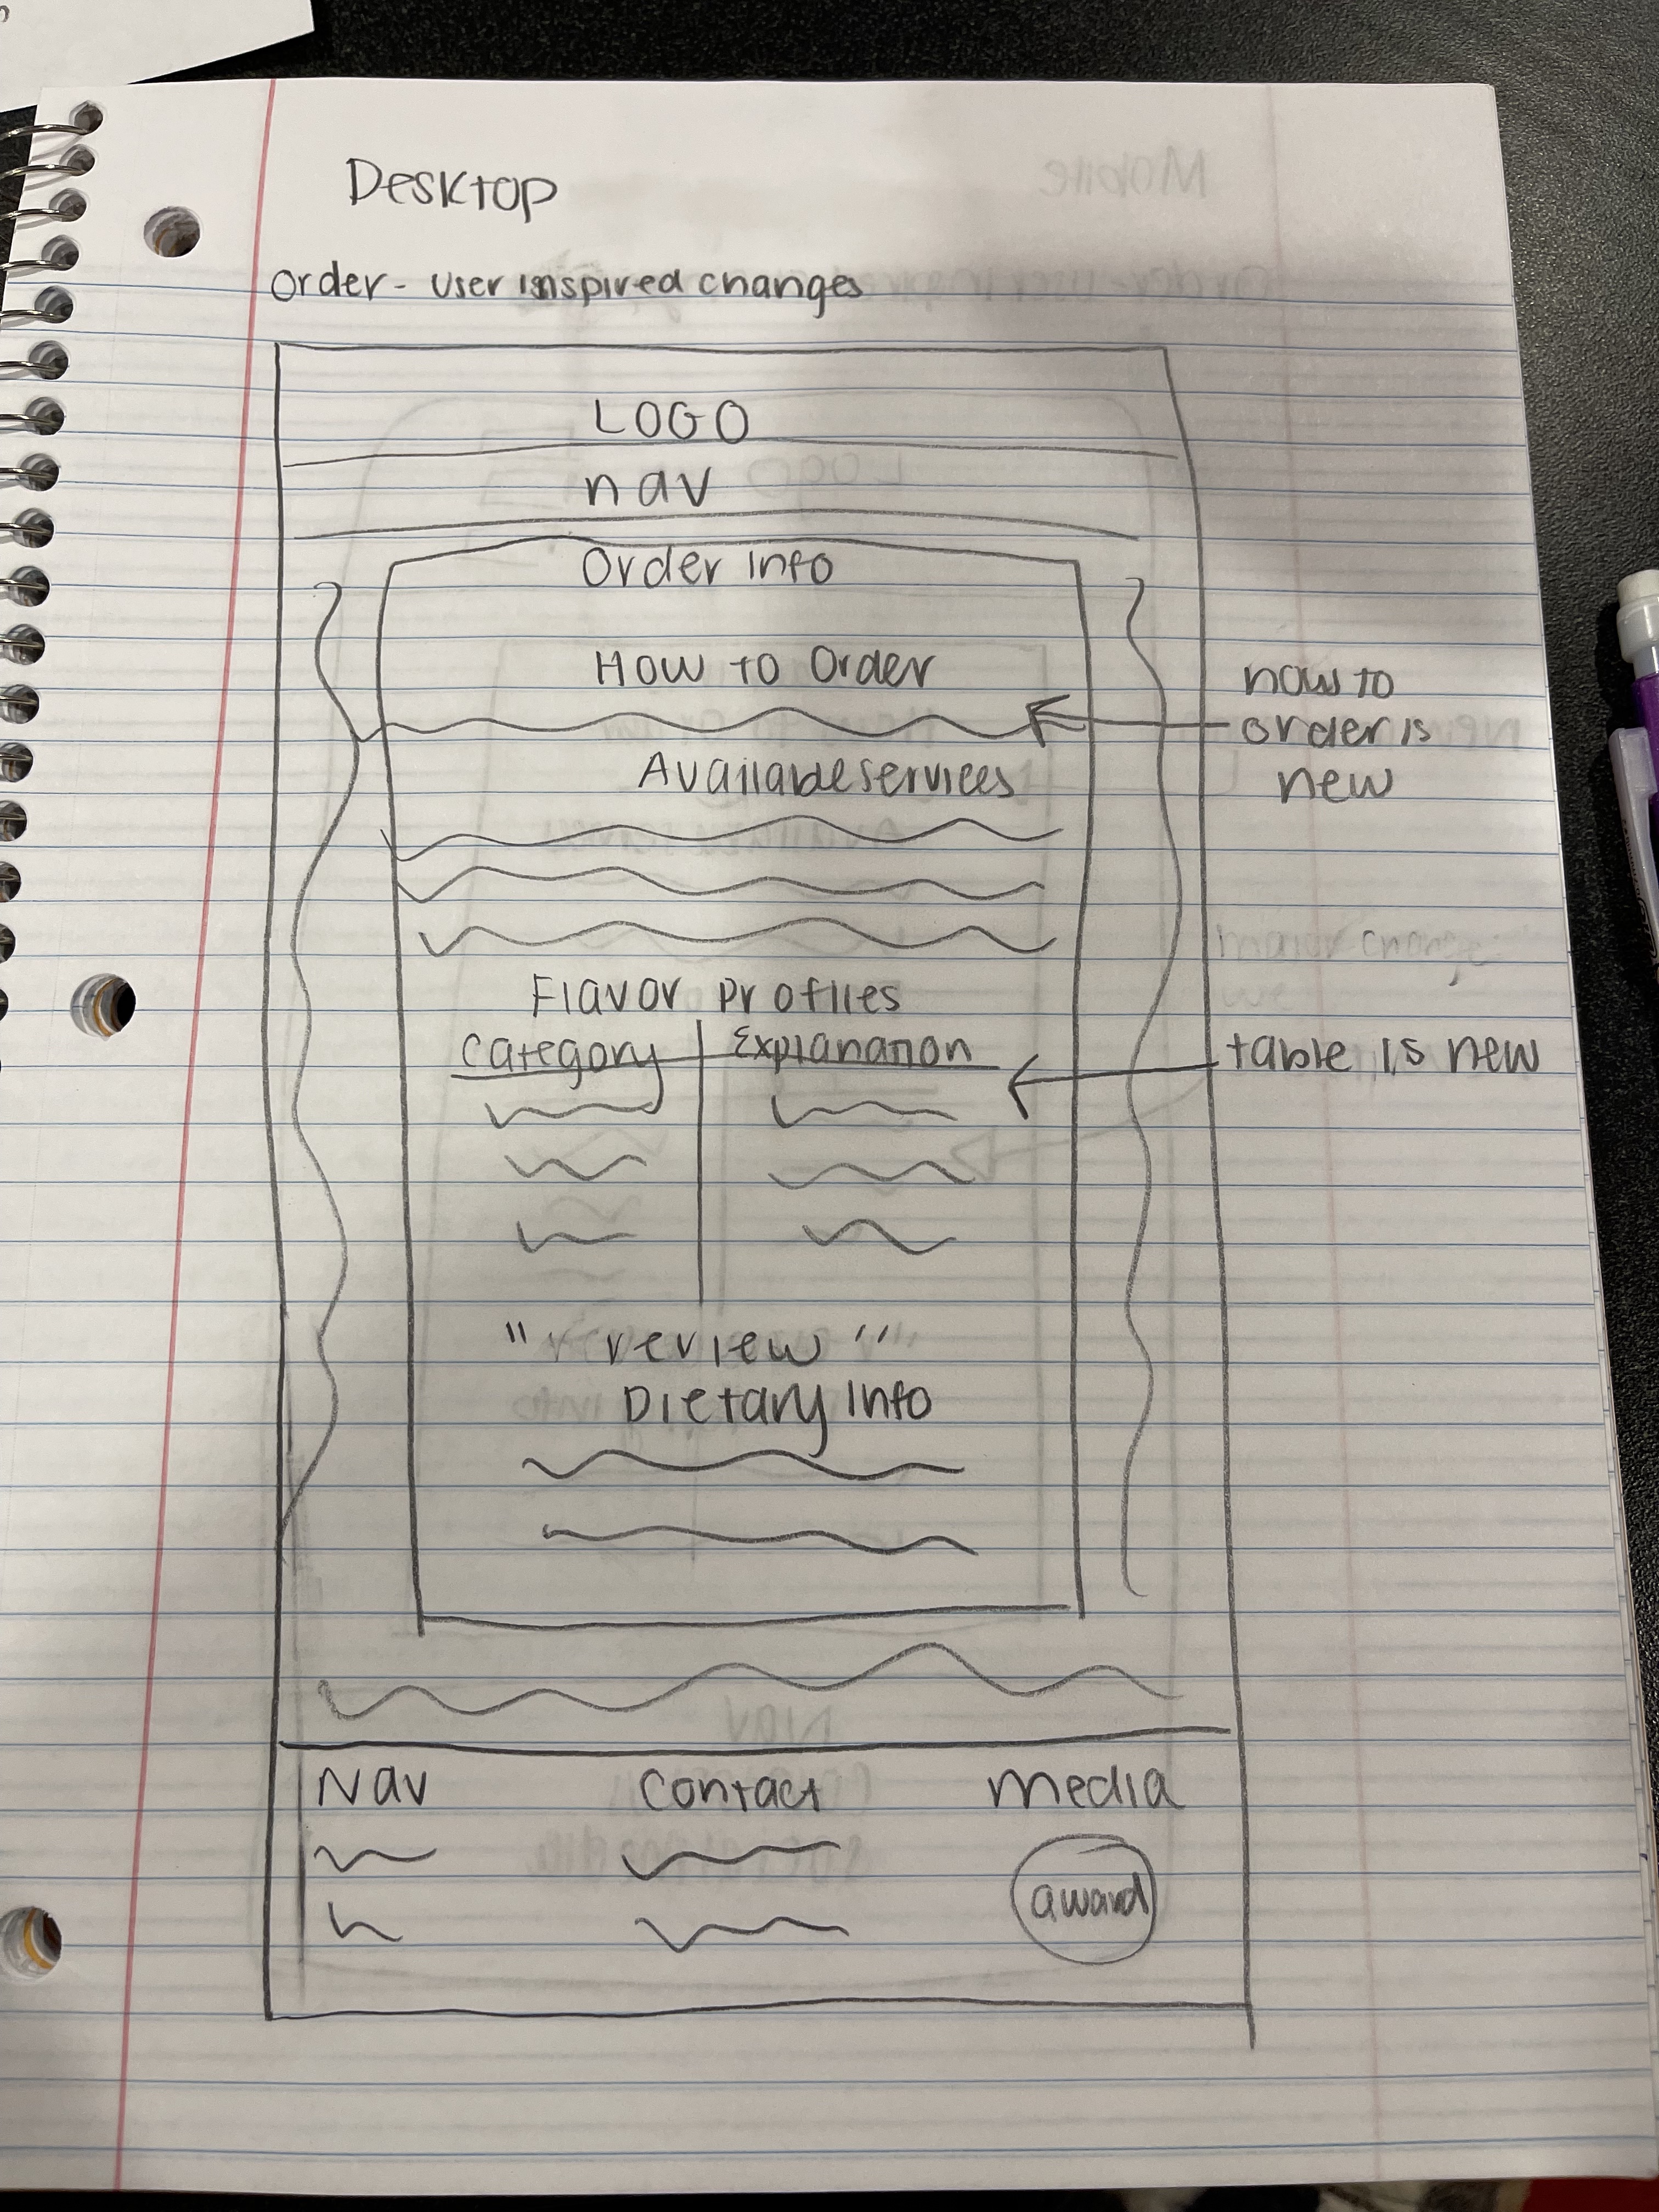 Desktop
Order - User inspired changes
LOGO
nav
Order Info
How to Order
how to
order is
new
Available services
Flavor Profiles
Category Explanation
table is new
" review "
Dietary Info
Nav Contact Media
award